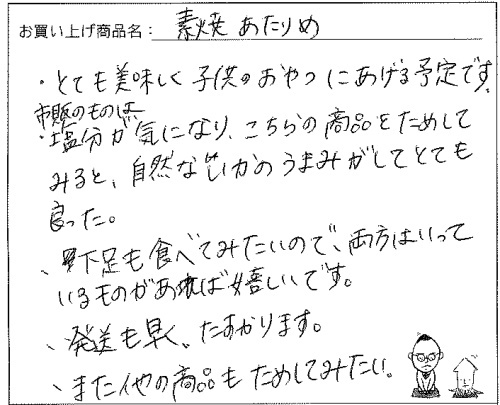 お買い上げ商品名： 素焼 あたりめ
・とても美味しく子供のおやつにあげる予定です。
市販のものは
・塩分が気になり、こちらの商品をためして
みると、自然ないかのうまみがしてとても
良った。
、下足も食べてみたいので、両方はいって
いるものがあれば嬉しいです。
、発送も早く、たすかります。
、また他の商品もためしてみたい。